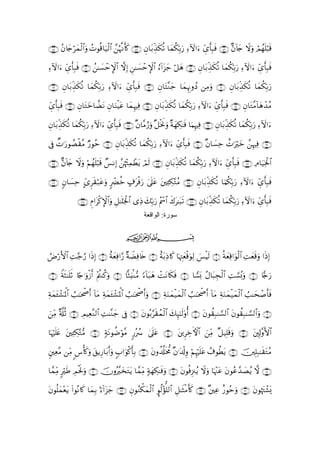 قَبْلَهُمْ وَلَا جَآنٌّ ۝ فَبِأَيِّ ءَالَآءِ رَبِّكُمَا تُكَذِّبَانِ ۝ كَأَنَّهُنَّ ٱلْيَاقُوتُ وَٱلْمَرْجَانُ ۝
فَبِأَيِّ ءَالَآءِ رَبِّكُمَا تُكَذِّبَانِ ۝ هَلْ جَزَآءُ ٱلْإِحْسَٰنِ إِلَّا ٱلْإِحْسَٰنُ ۝ فَبِأَيِّ ءَالَآءِ
رَبِّكُمَا تُكَذِّبَانِ ۝ وَمِن دُونِهِمَا جَنَّتَانِ ۝ فَبِأَيِّ ءَالَآءِ رَبِّكُمَا تُكَذِّبَانِ ۝
مُدْهَآمَّتَانِ ۝ فَبِأَيِّ ءَالَآءِ رَبِّكُمَا تُكَذِّبَانِ ۝ فِيهِمَا عَيْنَانِ نَضَّاخَتَانِ ۝ فَبِأَيِّ ءَالَآءِ
رَبِّكُمَا تُكَذِّبَانِ ۝ فِيهِمَا فَٰكِهَةٌ وَنَخْلٌ وَرُمَّانٌ ۝ فَبِأَيِّ ءَالَآءِ رَبِّكُمَا تُكَذِّبَانِ ۝
فِيهِنَّ خَيْرَٰتٌ حِسَانٌ ۝ فَبِأَيِّ ءَالَآءِ رَبِّكُمَا تُكَذِّبَانِ ۝ حُورٌ مَّقْصُورَٰتٌ فِي
ٱلْخِيَامِ ۝ فَبِأَيِّ ءَالَآءِ رَبِّكُمَا تُكَذِّبَانِ ۝ لَمْ يَطْمِثْهُنَّ إِنسٌ قَبْلَهُمْ وَلَا جَآنٌّ ۝
فَبِأَيِّ ءَالَآءِ رَبِّكُمَا تُكَذِّبَانِ ۝ مُتَّكِـِٔينَ عَلَىٰ رَفْرَفٍ خُضْرٍ وَعَبْقَرِيٍّ حِسَانٍ ۝
فَبِأَيِّ ءَالَآءِ رَبِّكُمَا تُكَذِّبَانِ ۝ تَبَٰرَكَ ٱسْمُ رَبِّكَ ذِي ٱلْجَلَٰلِ وَٱلْإِكْرَامِ ۝
سورة: الواقعة
بِسْمِ ٱللَّهِ ٱلرَّحْمَٰنِ ٱلرَّحِيمِ
إِذَا وَقَعَتِ ٱلْوَاقِعَةُ ۝ لَيْسَ لِوَقْعَتِهَا كَاذِبَةٌ ۝ خَافِضَةٌ رَّافِعَةٌ ۝ إِذَا رُجَّتِ ٱلْأَرْضُ
رَجًّا ۝ وَبُسَّتِ ٱلْجِبَالُ بَسًّا ۝ فَكَانَتْ هَبَآءً مُّنۢبَثًّا ۝ وَكُنتُمْ أَزْوَٰجًا ثَلَٰثَةً ۝
فَأَصْحَٰبُ ٱلْمَيْمَنَةِ مَآ أَصْحَٰبُ ٱلْمَيْمَنَةِ ۝ وَأَصْحَٰبُ ٱلْمَشْـَٔمَةِ مَآ أَصْحَٰبُ ٱلْمَشْـَٔمَةِ
۝ وَٱلسَّٰبِقُونَ ٱلسَّٰبِقُونَ ۝ أُو۟لَٰٓئِكَ ٱلْمُقَرَّبُونَ ۝ فِي جَنَّٰتِ ٱلنَّعِيمِ ۝ ثُلَّةٌ مِّنَ
ٱلْأَوَّلِينَ ۝ وَقَلِيلٌ مِّنَ ٱلْـَٔاخِرِينَ ۝ عَلَىٰ سُرُرٍ مَّوْضُونَةٍ ۝ مُّتَّكِـِٔينَ عَلَيْهَا
مُتَقَٰبِلِينَ ۝ يَطُوفُ عَلَيْهِمْ وِلْدَٰنٌ مُّخَلَّدُونَ ۝ بِأَكْوَابٍ وَأَبَارِيقَ وَكَأْسٍ مِّن مَّعِينٍ
۝ لَّا يُصَدَّعُونَ عَنْهَا وَلَا يُنزِفُونَ ۝ وَفَٰكِهَةٍ مِّمَّا يَتَخَيَّرُونَ ۝ وَلَحْمِ طَيْرٍ مِّمَّا
يَشْتَهُونَ ۝ وَحُورٌ عِينٌ ۝ كَأَمْثَٰلِ ٱللُّؤْلُؤِ ٱلْمَكْنُونِ ۝ جَزَآءًۢ بِمَا كَانُوا۟ يَعْمَلُونَ